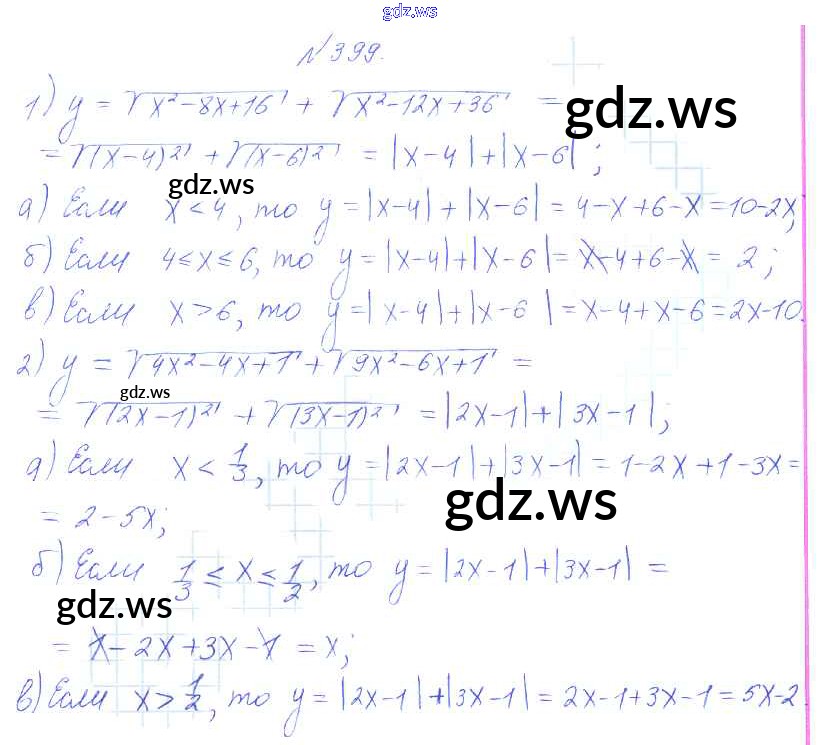 gdz.ws
№399.
1) y = √(x²-8x+16) + √(x²-12x+36) =
gdz.ws
= √((x-4)²) + √((x-6)²) = |x-4|+|x-6|;
gdz.ws
а) Если x<4, то y=|x-4|+|x-6|=4-x+6-x=10-2x;
б) Если 4≤x≤6, то y=|x-4|+|x-6|=x-4+6-x=2;
в) Если x>6, то y=|x-4|+|x-6|=x-4+x-6=2x-10.
2) y = √(4x²-4x+1) + √(9x²-6x+1) =
gdz.ws
= √((2x-1)²) + √((3x-1)²) = |2x-1|+|3x-1|;
а) Если x<1/3, то y=|2x-1|+|3x-1|=1-2x+1-3x=
gdz.ws
= 2-5x;
б) Если 1/3≤x≤1/2, то y=|2x-1|+|3x-1|=
gdz.ws
= 1-2x+3x-1=x;
в) Если x>1/2, то y=|2x-1|+|3x-1|=2x-1+3x-1=5x-2